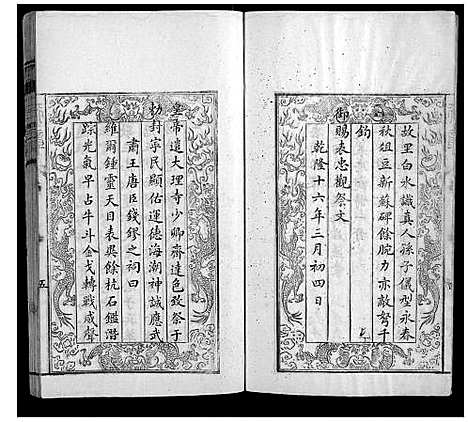 故里白水識真人孫子儀型永春
秋俎豆新蘇碑餘腕力亦敵弩千
鈞
御
賜表忠觀祭文
乾隆十六年三月初四日
皇帝遣大理寺少卿齊達色致祭于
勅封寧民顯佑運德海潮神誠應武
肅王唐臣錢鏐之祠曰
維爾鍾靈天目表異餘杭石鑑潛
踪光氣早占牛斗金戈轉戰威聲
五